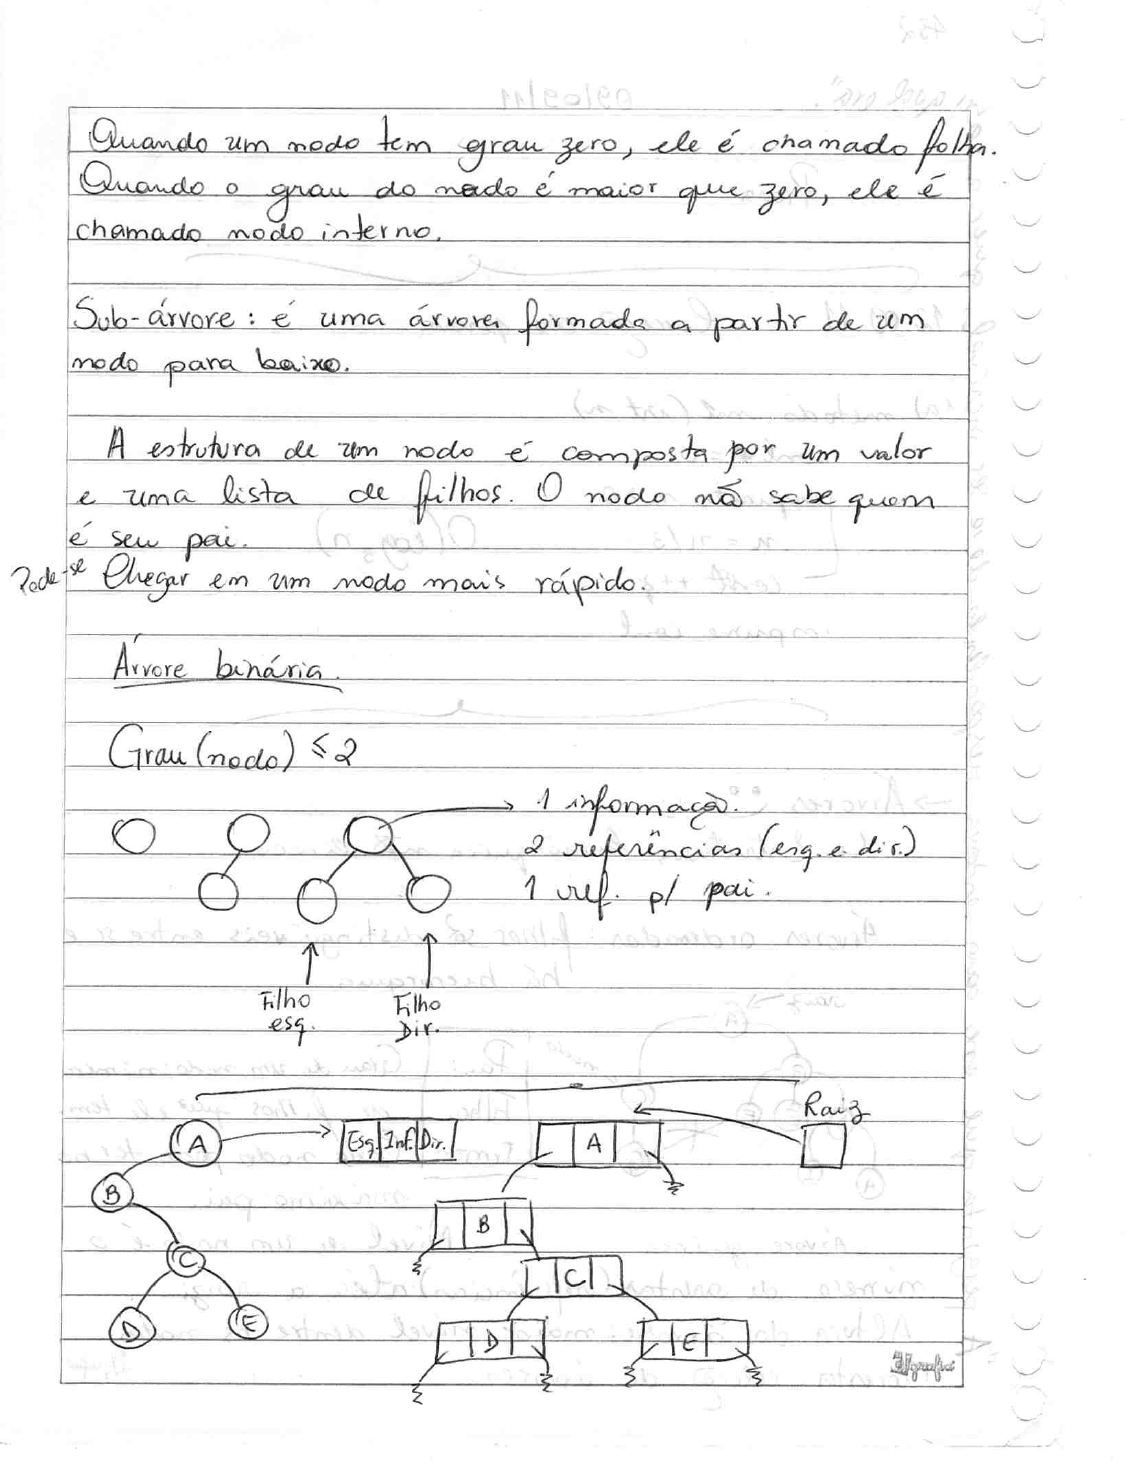 Quando um nodo tem grau zero, ele é chamado folha.
Quando o grau do nodo é maior que zero, ele é
chamado nodo interno.
Sub-árvore: é uma árvore formada a partir de um
nodo para baixo.
A estrutura de um nodo é composta por um valor
e uma lista de filhos. O nodo não sabe quem
é seu pai.
Pode-se Chegar em um nodo mais rápido.
Árvore binária.
Grau (nodo) ≤ 2
1 informação.
2 referências (esq. e dir.)
1 ref. p/ pai.
Filho esq.
Filho Dir.
Raiz
A
Esq. Inf. Dir.
A
B
B
C
C
D
E
D
E